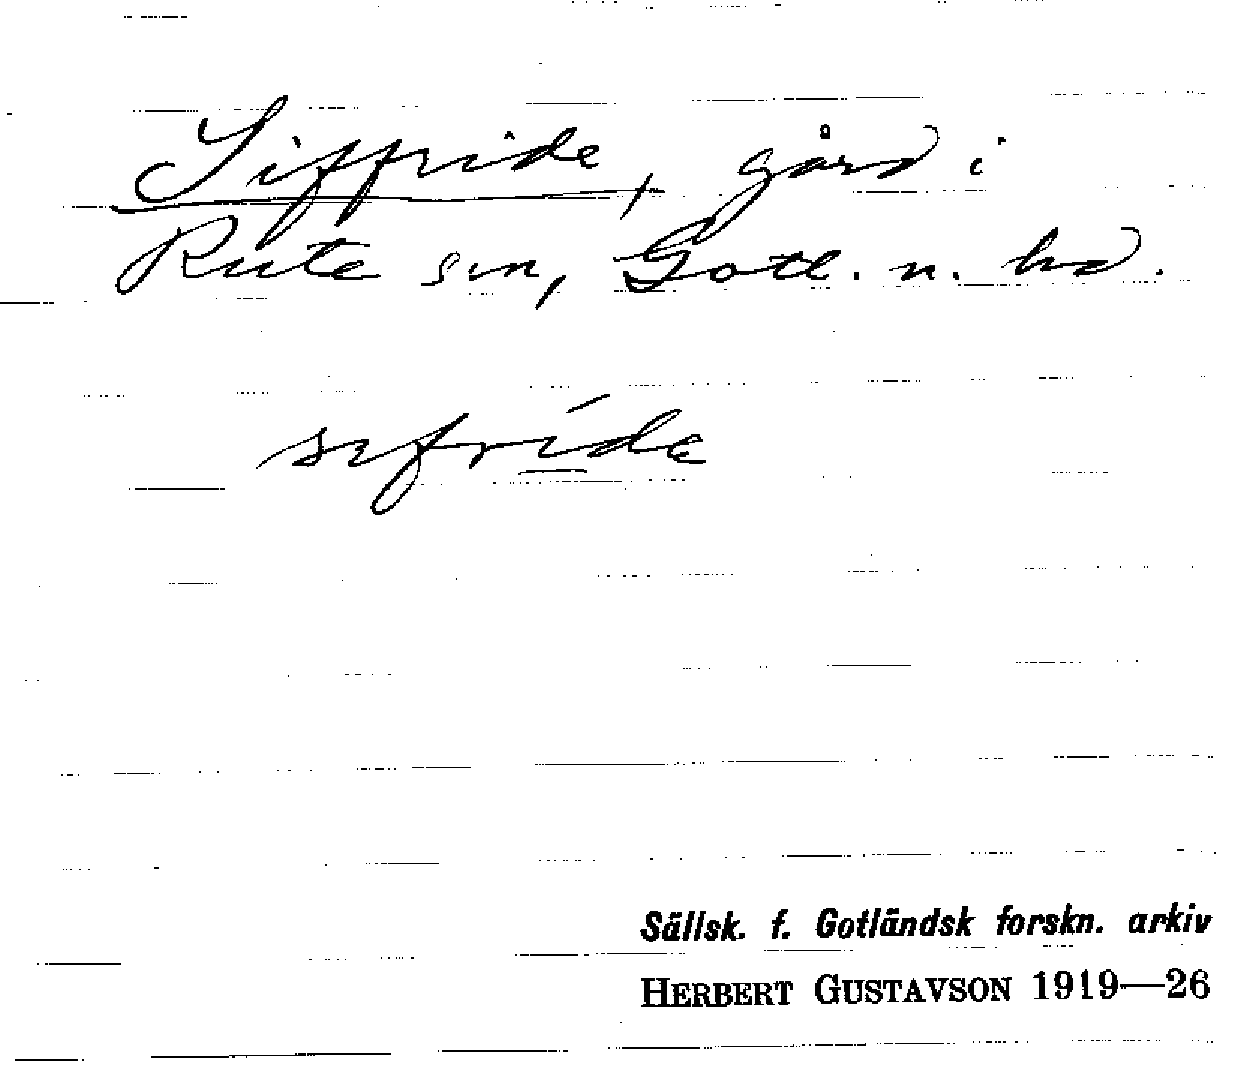 Siffride, gård i
Rute sn, Gotl. n. hd.
sıfríde
Sällsk. f. Gotländsk forskn. arkiv
HERBERT GUSTAVSON 1919—26